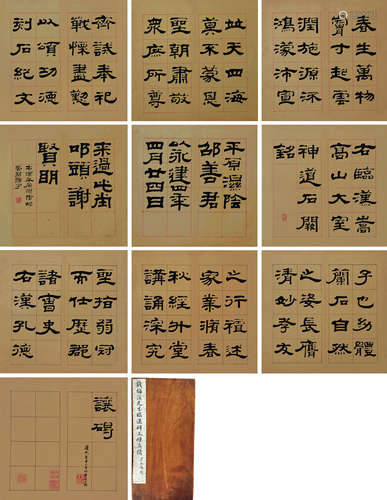 春生萬物
膚寸起雲
潤施源流
鴻濛沛宣
並天四海
莫不蒙恩
聖朝肅敬
衆庶所尊
齊誡奉祀
戰慄盡懃
以頌功德
刻石紀文
右臨漢嵩
高山大室
神道石闕
銘
平原濕陰
邵善君
以永建四年
四月廿四日
來過此堂
叩頭謝
賢明
子也幼體
蘭石自然
之姿長膺
清妙孝友
之行禔述
家業脩春
秋經升堂
講誦深究
聖指弱冠
而仕歷郡
諸曹史
右漢孔德
讓碣
錢梅溪先生臨漢碑三種真蹟